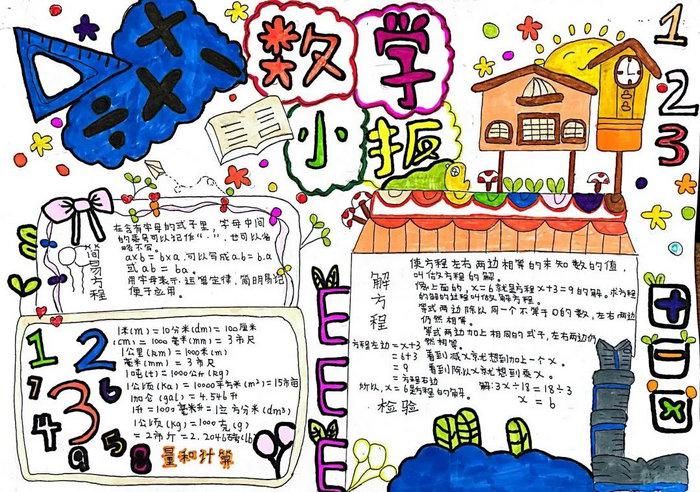 数学
小报
1
2
3
简易方程
在含有字母的式子里，字母中间
的乘号可以记作"·"，也可以省
略不写。
a×b=b×a，可以写成a.b=b.a
或ab=ba。
用字母表示运算定律，简明易记
便于应用。
1米(m)=10分米(dm)=100厘米
(cm)=1000毫米(mm)=3市尺
1公里(km)=1000米(m)
毫米(mm)=3市尺
1吨(t)=1000公斤(kg)
1公顷(ha)=10000平方米(m²)=15市亩
加仑(gal)=4.546升
1升=1000毫升=1立方分米(dm³)
=1000克(g)
=2市斤=2.2046磅(lb)
1 2
3
7
6
4
9 5 8
量和计算
解方程
使方程左右两边相等的未知数的值，
叫做方程的解。
像上面的，x=6就是方程x+3=9的解。求方程
的解的过程叫做解方程。
等式两边除以同一个不等于0的数，左右两边
仍然相等。
等式两边加上相同的式子，左右两边仍
然相等。
方程左边=x+3
=6+3 看到减x就想到加上一个x。
=9 看到除以x就想到乘x。
=方程右边
所以，x=6是方程的解。 解：3x÷18=18÷3
x=6
检验